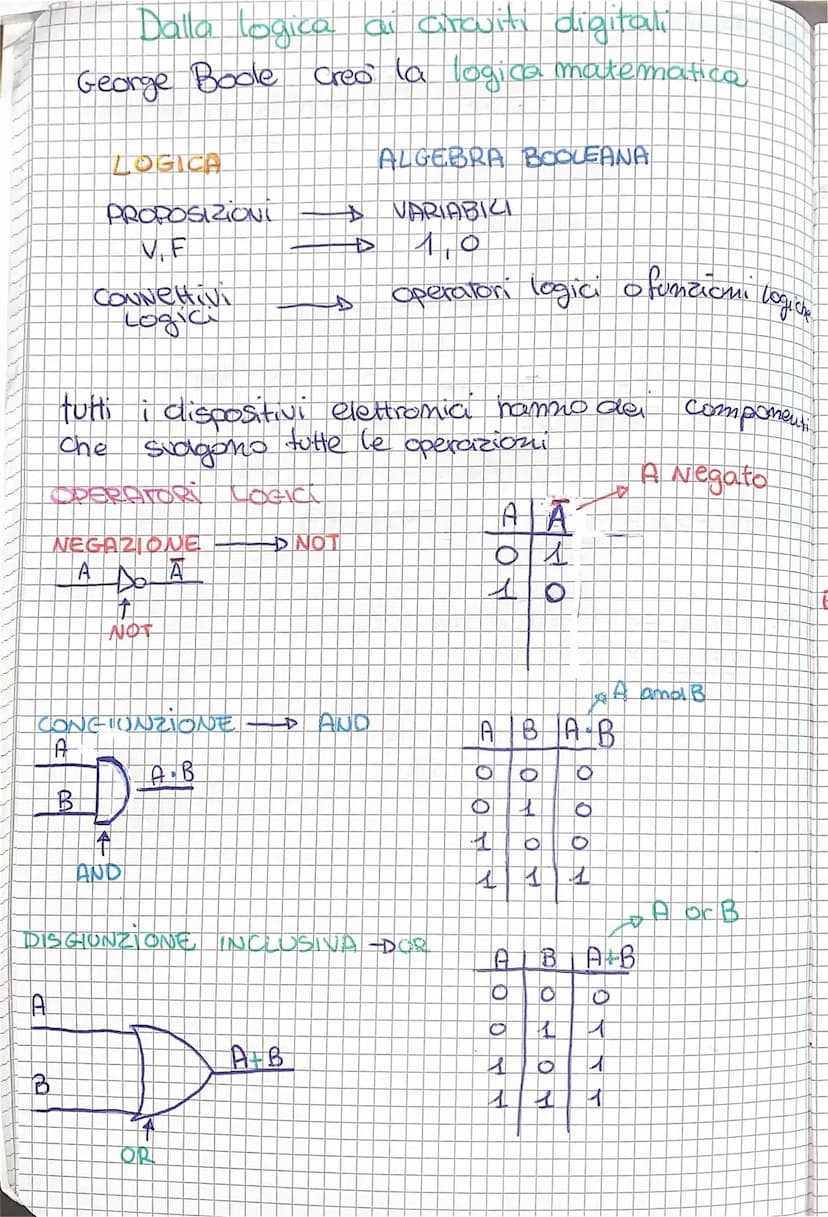 Dalla logica ai circuiti digitali
George Boole creò la logica matematica
LOGICA ALGEBRA BOOLEANA
PROPOSIZIONI → VARIABILI
V, F → 1, 0
CONNETTIVI → operatori logici o funzioni logiche
LOGICI
tutti i dispositivi elettronici hanno dei componenti
che svolgono tutte le operazioni
OPERATORI LOGICI
A Negato
A Ā
NEGAZIONE → NOT
0 1
A Ā
1 0
NOT
A and B
CONGIUNZIONE → AND
A B A·B
A
0 0 0
A·B
B
0 1 0
1 0 0
AND
1 1 1
A or B
DISGIUNZIONE INCLUSIVA → OR
A B A+B
0 0 0
A
0 1 1
A+B
1 0 1
B
1 1 1
OR